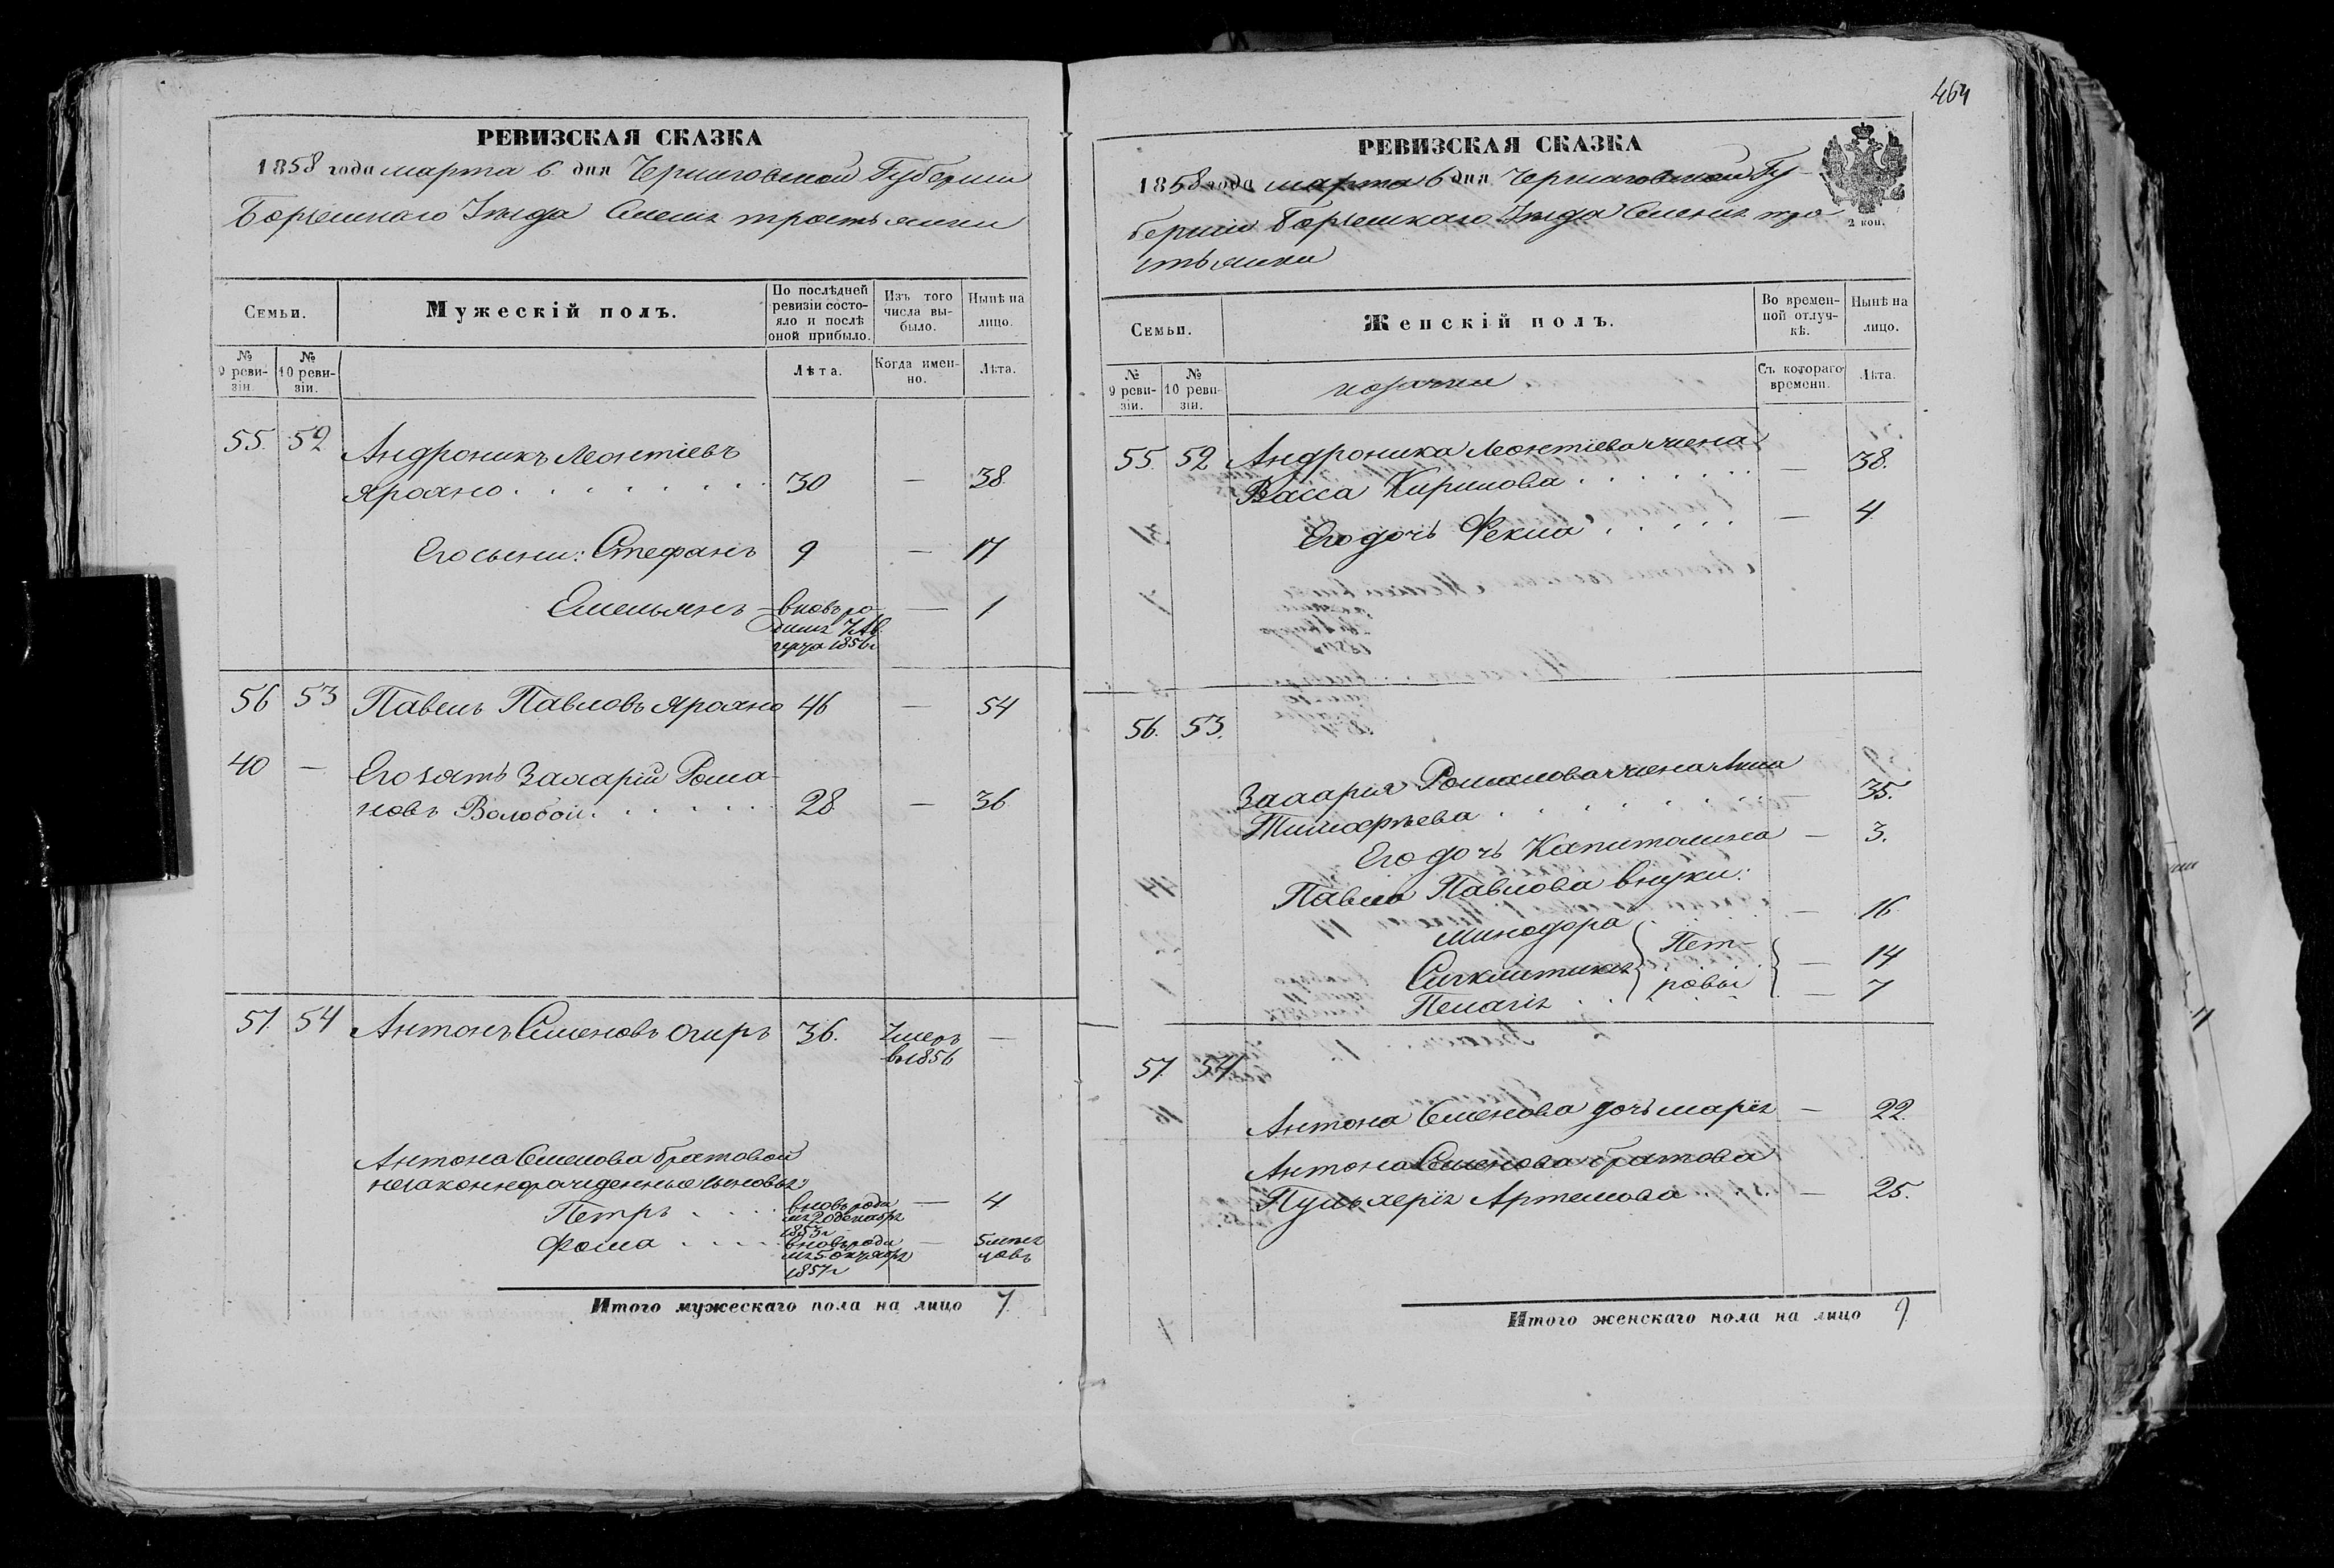 РЕВИЗСКАЯ СКАЗКА
1858 года марта 6 дня Черниговской Губерніи
Борзенскаго Уезда Селенія тростянки
Семьи.
Мужескій полъ.
По послѣдней
ревизіи состо-
яло и послѣ
оной прибыло.
Изъ того
числа вы-
было.
Нынѣ на
лицо.
№
9 реви-
зіи.
№
10 реви-
зіи.
Лѣта.
Когда имен-
но.
Лѣта.
55. 52 Андроникъ Леонтіевъ
Ярохно 30 — 38.
Его сыни: Стефанъ 9 — 17
Емельянъ — вновь ро — 1
1856
56 53 Павелъ Павловъ Ярохно 46 — 54
40 — Его зять Захарій Рома-
новъ Волобой 28 — 36
57. 54 Антонъ Семеновъ Огиръ 36. Умеръ —
в 1856
Антона Семенова братовой
незаконнорожденные сыновья:
Петръ вновь роди — 4
лся 20 декабря
1853 г
Фома вновь роди — 5 меся
лся 5 октября цовъ
1857 г
Итого мужескаго пола на лицо 7.
464
РЕВИЗСКАЯ СКАЗКА
1858 года марта 6 дня Черниговской Гу-
берніи Борзенскаго Уезда Селенія тро
стянки
2 коп.
Семьи.
Женскій полъ.
Во времен-
ной отлуч-
кѣ.
Нынѣ на
лицо.
№
9 реви-
зіи.
№
10 реви-
зіи.
козачки
Съ котораго
времени.
Лѣта.
55. 52 Андроника Леонтіева жена
Васса Кирилова — 38.
Его дочь Фекла — 4
56. 53.
Захарія Романова жена Анна
Тимофѣева — 35.
Его дочь Капитолина — 3.
Павла Павлова внуки:
Минодора — 16
Пет-
Синклитикія — 14
ровы
Пелагія — 7
57. 54
Антона Семенова дочь марія — 22.
Антона Семенова братова
Пульхерія Артемова — 25.
Итого женскаго пола на лицо 9